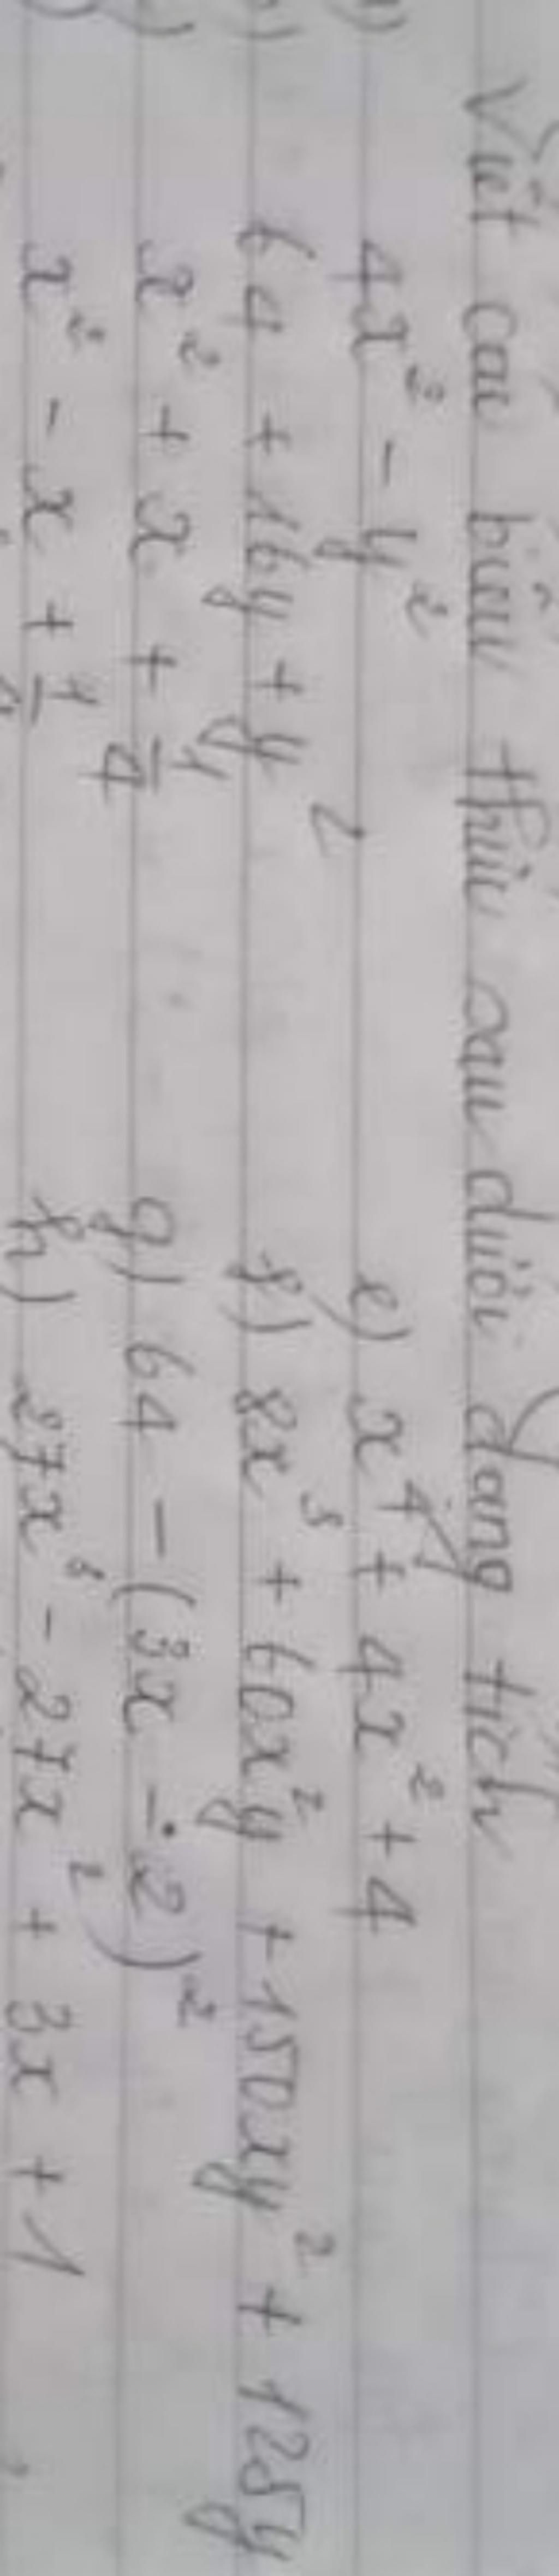 Viết các biểu thức sau dưới dạng tích
4x² - y² e) x⁴ + 4x² + 4
64 + 16y + y² f) 8x³ + 60x²y + 150xy² + 125y
x² + x + 1/4 g) 64 - (3x - 2)²
x² - x + 1/4 h) 27x³ - 27x² + 3x + 1